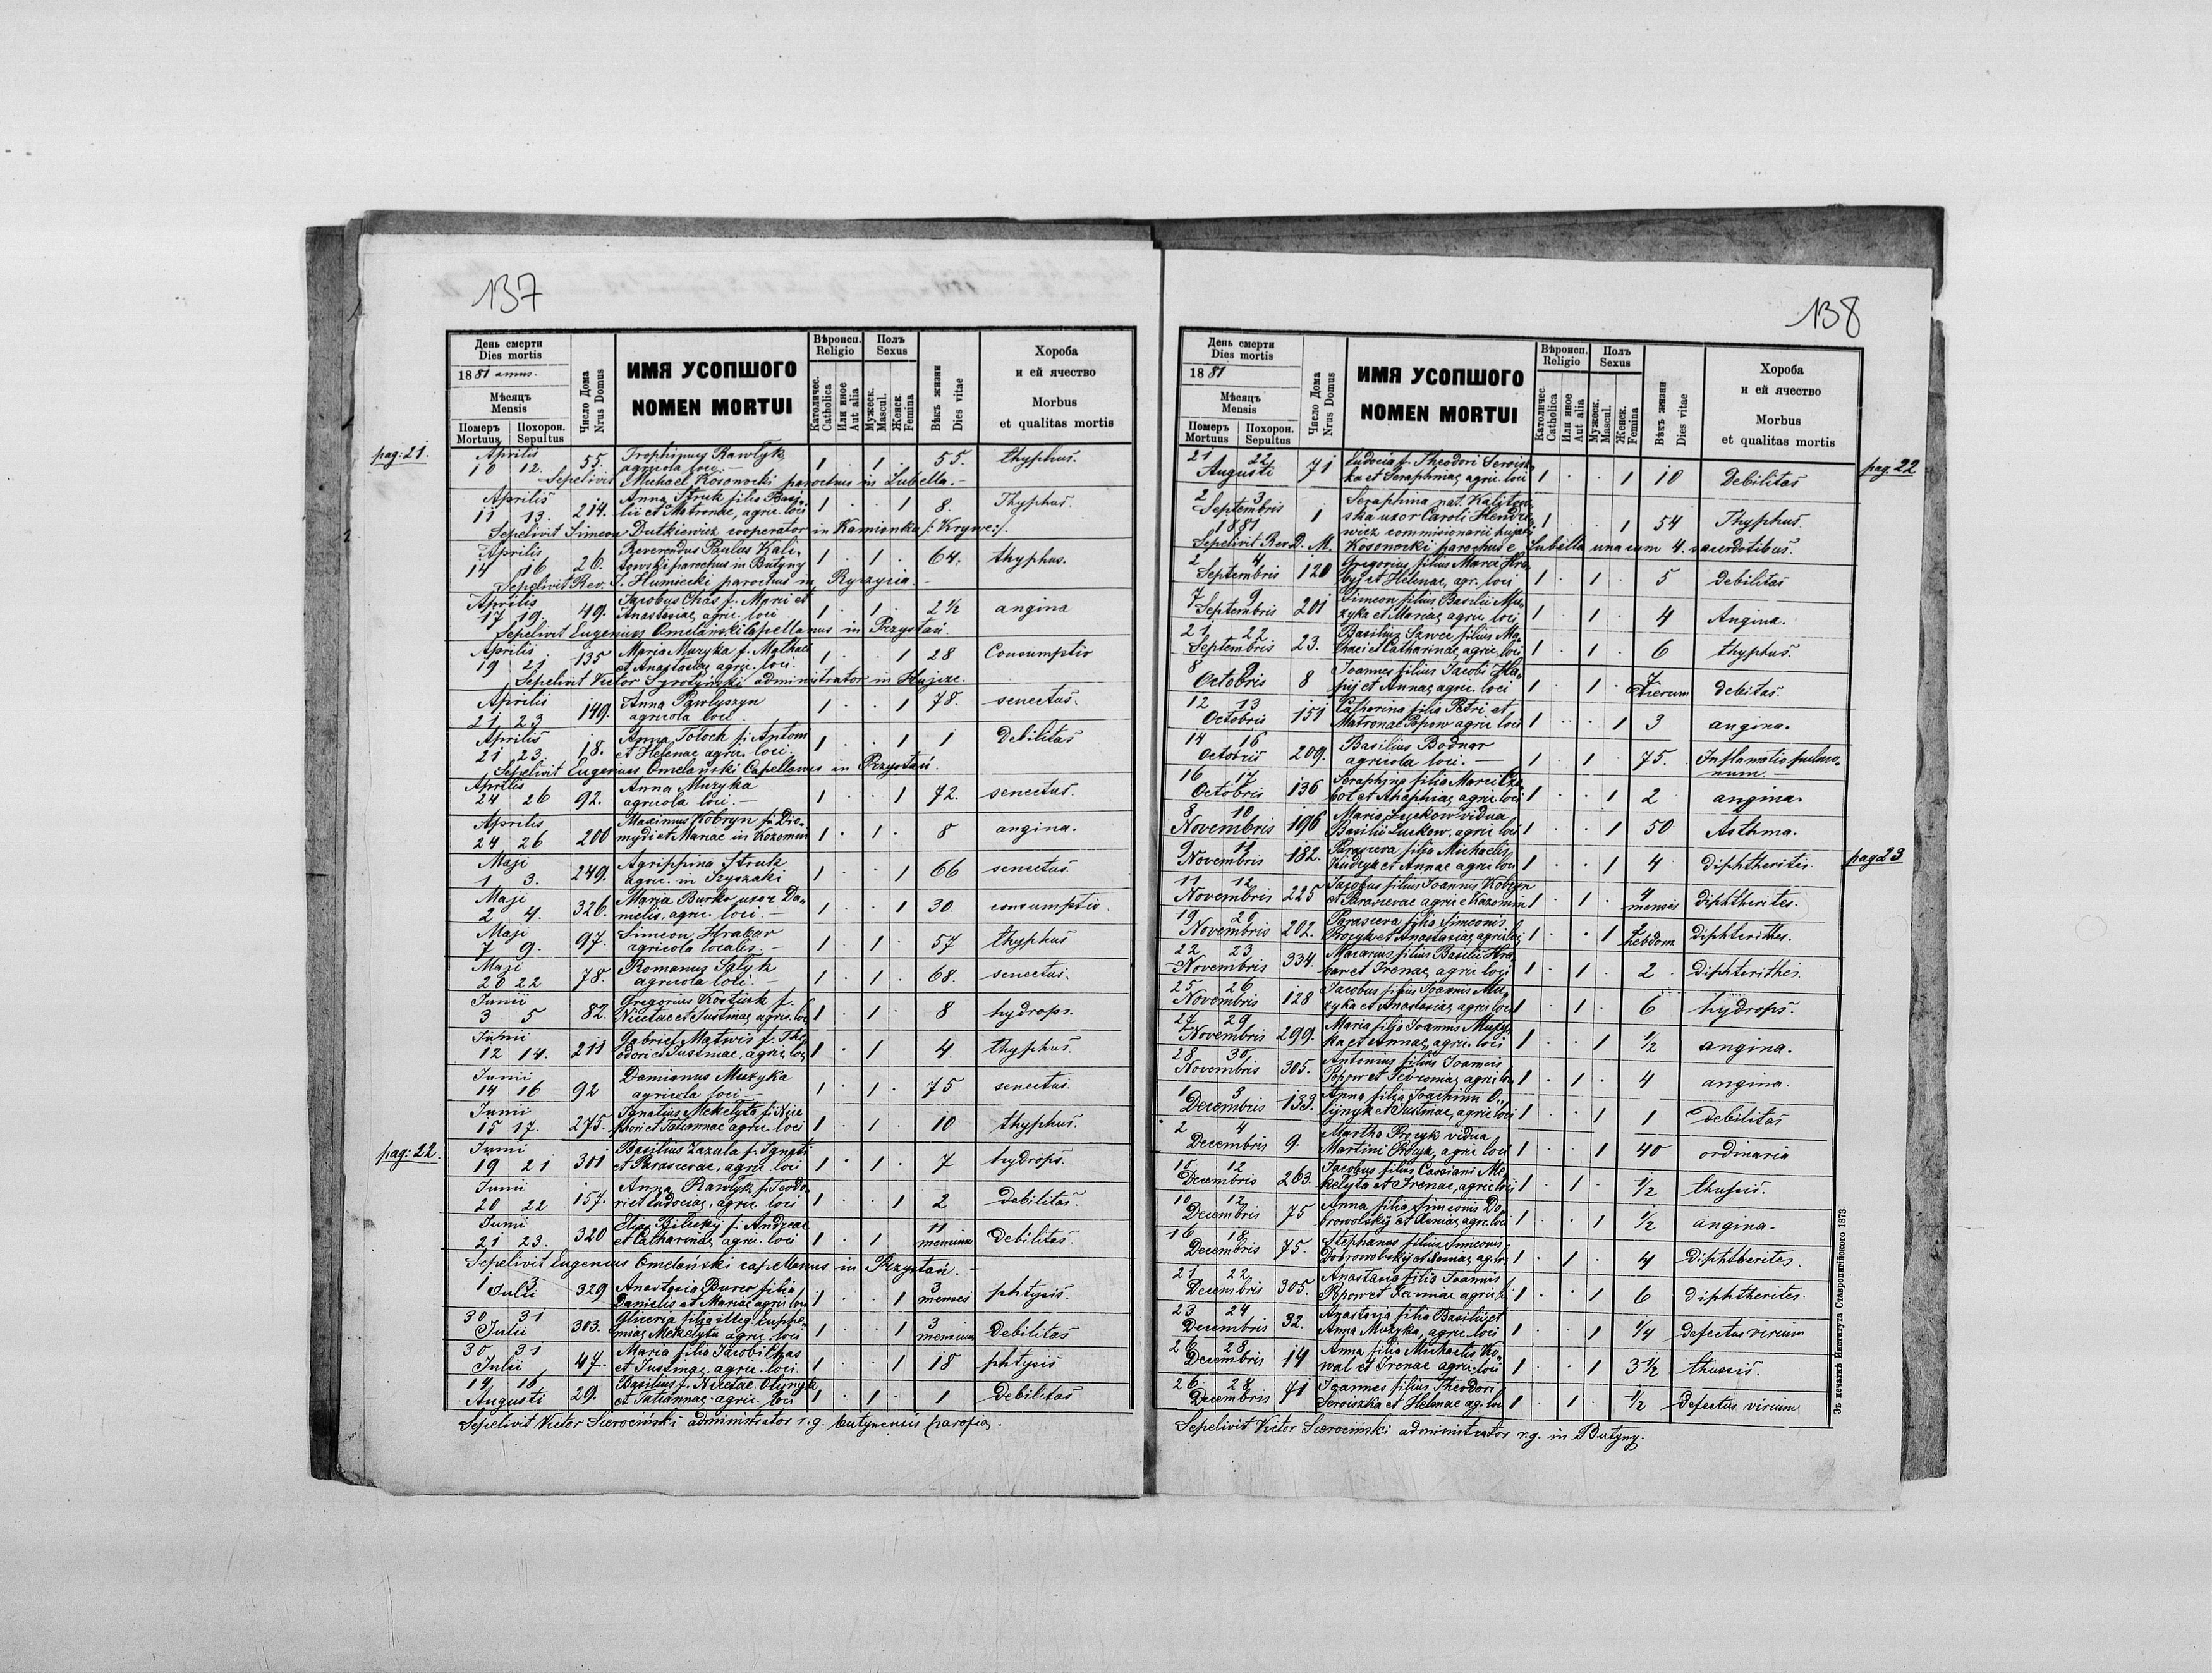 137
День смерти
Dies mortis
1881 annus.
Мѣсяцъ
Mensis
Померъ Похорон.
Mortuus Sepultus
Число Дома
Nrus Domus
ИМЯ УСОПШОГО
NOMEN MORTUI
Вѣроисп.
Religio
Католичес.
Catholica
Или иное
Aut alia
Полъ
Sexus
Мужеск.
Mascul.
Женск.
Femina
Вѣкъ жизни
Dies vitae
Хороба
и ей ячество
Morbus
et qualitas mortis
pag: 21.
Aprilis Trophimus Rawlyk
10 12. 55. agricola loci.— 1 . 1 . 55. thyphus.
Sepelivit Michael Kosonocki parochus in Lubella.—
Aprilis Anna Struk filia Basi-
11 13. 214. lii et Matronae, agric. loci 1 . . 1 8. Thyphus.
Sepelivit Simeon Dutkiewicz cooperator in Kamionka /: Krywe:/.
Aprilis Reverendus Paulus Kali-
14 16 26. towski parochus in Butyny 1 . 1 . 64. thyphus.
Sepelivit Rev. J. Humiecki parochus in Ryczycia.—
Aprilis Jacobus Chas f. Marci et
17 19. 49. Anastasiae, agric. loci 1 . 1 . 2 ½ angina
Sepelivit Eugenius Omelański Capellanus in Przystań.
Aprilis Maria Muzyka f. Mathaei
19 21 135 et Anastasiae agric. loci. 1 . . 1 28 Consumptio
Sepelivit Victor Syrotyński administrator in Hujcze.
Aprilis Anna Pawlyszyn
21 23 149. agricola loci 1 . . 1 78. senectus.
Aprilis Anna Totoch f. Antoni
21 23. 18. et Helenae agric. loci. 1 . . 1 1 Debilitas
Sepelivit Eugenius Omelański Capellanus in Przystań.
Aprilis Anna Muzyka
24 26 92. agricola loci.— 1 . . 1 72. senectus.
Aprilis Maximus Kobryn f. Dio-
24 26 200 mydi et Mariae in Kozomin 1 . 1 . 8 angina.
Maji Agrippina Struk
1 3. 249. agric. in Szyszaki 1 . . 1 66 senectus.
Maji Maria Burko uxor Da-
2 4. 326. nielis, agric. loci.— 1 . . 1 30. consumptio.
Maji Simeon Hrabar
7 9. 97. agricola localis.— 1 . 1 . 57 thyphus
Maji Romanus Salyk
20 22 78. agricola loci.— 1 . 1 . 68. senectus.
Junii Gregorius Kostiuk f.
3 5 82. Nicetae et Justinae, agric. loci 1 . 1 . 8 hydrops.
Junii Gabriel Matwis f. The-
12 14. 211 odori et Justinae, agric. loci 1 . 1 4. thyphus.
Junii Damianus Muzyka
14 16 92 agricola loci— 1 . 1 . 75 senectus.
Junii Ignatius Mekelyta f. Nice-
15 17. 275. phori et Tatiannae agric. loci 1 . 1 . 10 thyphus.
pag: 22.
Junii Basilius Zazula f. Ignatii
19 21 301 et Parascevae, agric. loci 1 . 1 . 7 hydrops.
Junii Anna Rawlyk f. Teodo-
20 22 157. ri et Eudociae, agric. loci 1 . . 1 2 debilitas.
Junii Elias Bilecky f. Andreae
21 23. 320 et Catharinae, agric. loci 1 . 1 11 mensium debilitas.
Sepelivit Eugenius Omelański capellanus in Przystań.—
1 3 Anastasia Burco filia
Julii 329 Danielis et Mariae agric. loci 1 . . 1 3 menses phtysis.
30 31 Gliceria filia illeg. Euphe-
Julii 303. miae Mekelyta agric. loci 1 . . 1 3 mensium debilitas
30 31 Maria filia Jacobi Chas
Julii 47. et Justinae, agric. loci. 1 . . 1 18 phtysis
14 16 Basilius f. Nicetae Olijnyk
Augusti 29. et Tatiannae, agric. loci 1 . 1 . 1 Debilitas
Sepelivit Victor Sierociński administrator r.g. butynensis parochia.
138
День смерти
Dies mortis
1881
Мѣсяцъ
Mensis
Померъ Похорон.
Mortuus Sepultus
Число Дома
Nrus Domus
ИМЯ УСОПШОГО
NOMEN MORTUI
Вѣроисп.
Religio
Католичес
Catholica
Или иное
Aut alia
Полъ
Sexus
Мужеск.
Mascul.
Женск.
Femina
Вѣкъ жизни
Dies vitae
Хороба
и ей ячество
Morbus
et qualitas mortis
pag. 22
21 22 Eudocia f. Theodori Seroisz-
Augusti 71 ka et Seraphinae, agric. loci 1 . . 1 10 Debilitas
2 3 Seraphina nat. Kalitow-
Septembris 1 ska uxor Caroli Hendre-
1881 wicz commissionarii hujatis 1 . . 1 54 Thyphus.
Sepelivit Rev. D. M. Kosonocki parochus e Lubella una cum 4. sacerdotibus.
2 4 Gregorius filius Marci Hra-
Septembris 120 byj et Helenae, agr. loci 1 . 1 . 5 debilitas
7 9 Simeon filius Basilii Mu-
Septembris 201 zyka et Mariae, agric. loci 1 . 1 . 4 Angina.
21 22 Basilius Szwec filius Ma-
Septembris 23. thaei et Catharinae, agric. loci 1 . 1 . 6 thyphus.
8 9 Joannes filius Jacobi Hla-
Octobris 8 pij et Annae, agric. loci 1 . 1 . 7 dierum debitas.
12 13 Catharina filia Petri et
Octobris 151 Matronae Popow agric. loci 1 . . 1 3 angina.
14 16 Basilius Bodnar
Octobris 209. agricola loci.— 1 . 1 . 75. Inflamatio pulmo-
num.—
16 17 Seraphina filia Marci Cza-
Octobris 136 bot et Ahaphiae, agric. loci 1 . . 1 2 angina.
8 10 Maria Luckow vidua
Novembris 196 Basilii Luckow, agric. loci 1 . . 1 50 Asthma.
pag 23
9 11 Parasceva filia Michaelis
Novembris 182. Kudryk et Annae agric. loci 1 . . 1 4 diphtheritis.
11 12 Jacobus filius Joannis Kobryn
Novembris 225 et Parascevae agric. e Kazomin 1 . 1 . 4 mensis diphtherites.
19 20 Parasceva filia Simeonis
Novembris 202. Procyk et Anastasiae, agric. loci 1 . . 1 7 hebdom. diphterithes.
22 23 Macarius filius Basilii Hra-
Novembris 334. bar et Irenae, agric. loci 1 . 1 . 2 diphterithes.
25 26 Jacobus filius Joannis Mu-
Novembris 128 zyka et Anastasiae, agric. loci 1 . 1 . 6 hydrops.
27 29 Maria filia Joannis Muzy-
Novembris 299. ka et Annae, agric. loci 1 . . 1 ½ angina.
28 30 Antonius filius Joannis
Novembris 305. Popow et Fevroniae, agric. loci 1 . 1 . 4 angina.
1 3 Anna filia Joachimi O-
Decembris 133. lijnyk et Justinae, agric. loci 1 . . 1 1 debilitas
2 4 Martha Procyk vidua
Decembris 9. Martini Procyk, agric. loci 1 . . 1 40 ordinaria
10 12 Jacobus filius Cassiani Me-
Decembris 263. kelyta et Irenae, agric. loci 1 . 1 . ½ thussis.
10 12 Anna filia Simeonis Do-
Decembris 75 browolskij et Xeniae, agr. loci 1 . . 1 ½ angina.
16 18 Stephanus filius Simeonis
Decembris 75. Dobrowolskij et Xeniae, ag. loci 1 . 1 . 4 diphtherites.
21 22 Anastasia filia Joannis
Decembris 305. Popow et agric. loci 1 . . 1 6 diphtherites.
23 24 Anastasia filia Basilii et
Decembris 92. Anna Muzyka, agric. loci 1 . . 1 ¼ defectus virium
26 28 Anna filia Michaelis Ko-
Decembris 14 wal et Irenae agric. loci 1 . . 1 3 ½ thussis.
26 28 Joannes filius Theodori
Decembris 71 Seroiszka et Helenae ag. loci 1 . 1 . ½ defectus virium
Sepelivit Victor Sierociński administrator r.g. in Butyny.
Зъ печатнѣ Института Ставропигійского 1873